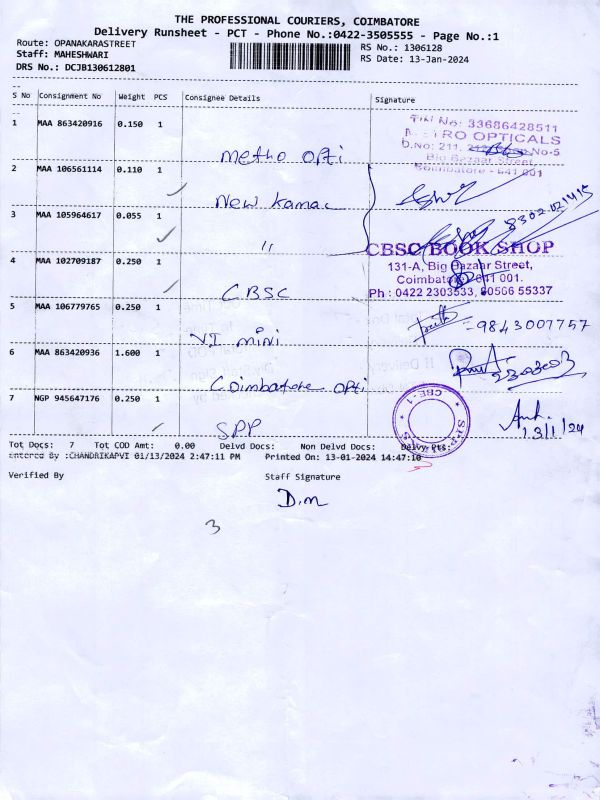 THE PROFESSIONAL COURIERS, COIMBATORE
Delivery Runsheet - PCT - Phone No.:0422-3505555 - Page No.:1
Route: OPANAKARASTREET
RS No.: 1306128
Staff: MAHESHWARI
RS Date: 13-Jan-2024
DRS No.: DCJB130612801
S No Consignment No Weight PCS Consignee Details Signature
1 MAA 863420916 0.150 1 Metho Opti
TIN No: 33686428511
METRO OPTICALS
D.No: 211, No-5
Big Bazaar Street,
Coimbatore - 641 001
2 MAA 106561114 0.110 1 New Kamac
3 MAA 105964617 0.055 1 "
8302021415
4 MAA 102709187 0.250 1 CBSC
CBSC BOOK SHOP
131-A, Big Bazaar Street,
Coimbatore 641 001.
Ph : 0422 2303533, 90566 55337
5 MAA 106779765 0.250 1 VI mini
-9843007757
6 MAA 863420936 1.600 1 Coimbatore opti
2303603
7 NGP 945647176 0.250 1 SPP
CBE-1
13/1/24
Tot Docs: 7 Tot COD Amt: 0.00 Delvd Docs: Non Delvd Docs: Delvy Pts:
Entered By :CHANDRIKAPVI 01/13/2024 2:47:11 PM Printed On: 13-01-2024 14:47:10
Verified By Staff Signature
D.M
3